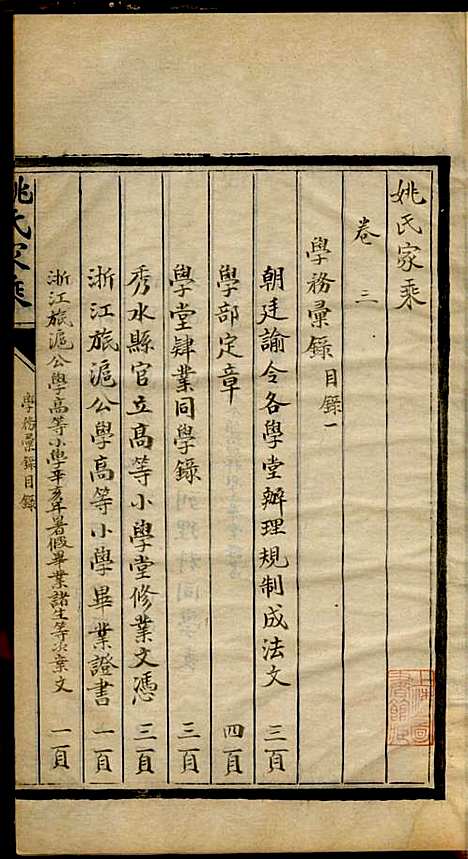 姚氏家乘
卷三
學務彙錄目錄一
朝廷諭令各學堂辦理規制成法文 三頁
學部定章 四頁
學堂肄業同學錄 三頁
秀水縣官立高等小學堂修業文憑 三頁
浙江旅滬公學高等小學畢業證書 一頁
浙江旅滬公學高等小學辛亥年暑假畢業諸生等次案文 一頁
姚氏家乘
學務彙錄目錄